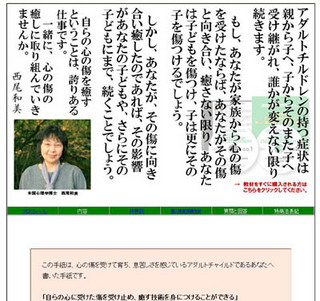 アダルトチルドレンの持つ症状は
親から子へ、子からそのまた子へ
受け継がれ、誰かが変えない限り
続きます。
もし、あなたが家族から心の傷
を受けたならば、あなたがその傷
と向き合い、癒さない限り、あなた
は子どもを傷つけ、子は更にその
子を傷つけるでしょう。
しかし、あなたが、その傷に向き
合い癒したのであれば、その影響
があなたの子どもや、さらにその
子どもにまで、続くことでしょう。
自らの心の傷を癒す
ということは、誇りある
仕事です。
一緒に、心の傷の
癒しに取り組んでいき
ませんか。
西尾和美
米国心理学博士 西尾和美
→ 教材をすぐに購入される方は
こちらをクリックしてください。
内容
質問と回答
特商法表記
この手紙は、心の傷を受けて育ち、息苦しさを感じているアダルトチャイルドであるあなたへ
書いた手紙です。
「自らの心に受けた傷を受け止め、癒す技術を身につけることができる」